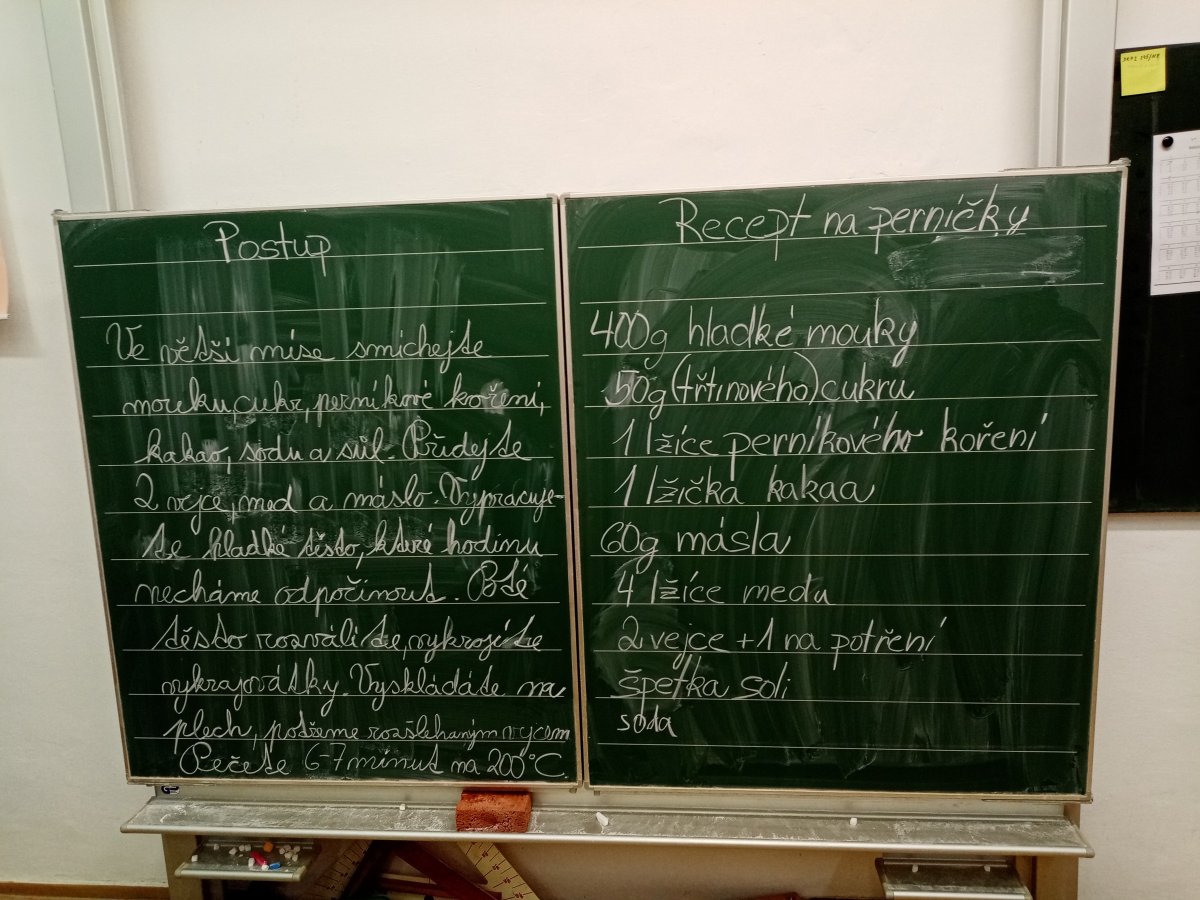 Postup
Ve větší míse smíchejte
mouku, cukr, perníkové koření,
kakao, sodu a sůl. Přidejte
2 vejce, med a máslo. Vypracuje-
te hladké těsto, které hodinu
necháme odpočinout. Poté
těsto rozválíte, vykrojíte
vykrajovátky. Vyskládáte na
plech, potřeme rozšlehaným vejcem
Pečete 6-7 minut na 200°C.
Recept na perníčky
400g hladké mouky
50g (třtinového) cukru
1 lžíce perníkového koření
1 lžička kakaa
60g másla
4 lžíce medu
2 vejce + 1 na potření
špetka soli
soda